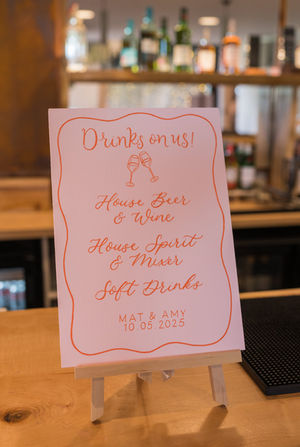 Drinks on us!
House Beer
& Wine
House Spirit
& Mixer
Soft Drinks
MAT & AMY
10.05.2025